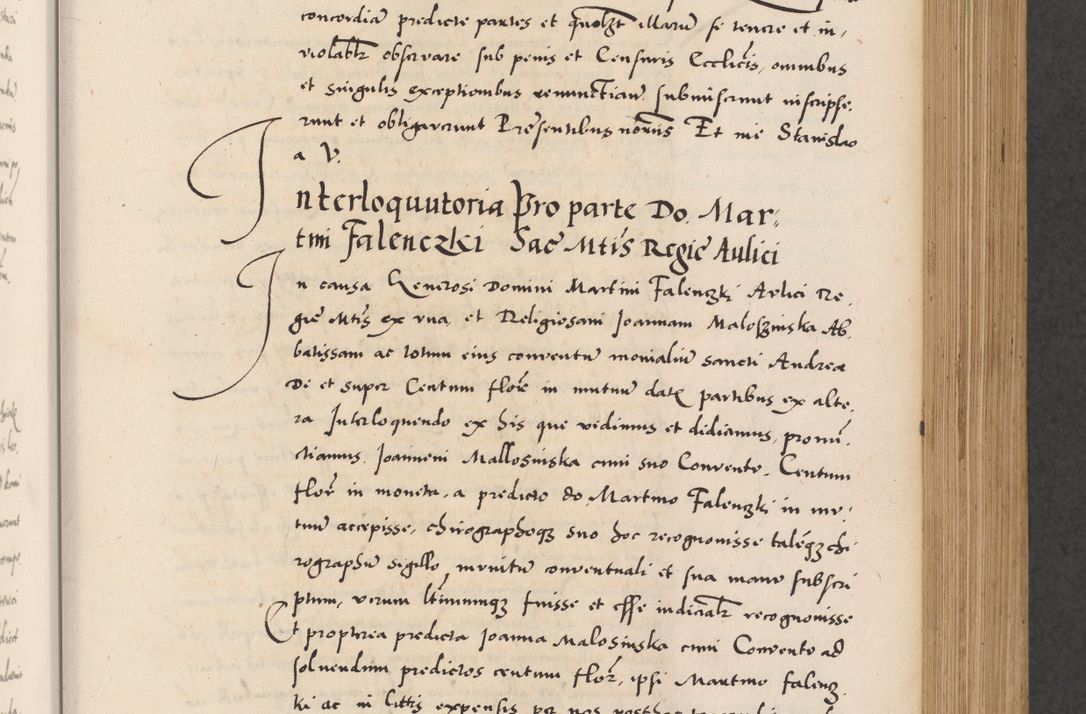 concordiā predicte partes et quotzt illarū se tenere et in,
violabtr observare sub penis et Censuris Ecclīcis, omnibus
et singulis exceptionibus renunctian submiserunt inscripse,
runt et obligaverunt Presentibus noriis Et me Stanislao
a V.
Interloquutoria Pro parte Do. Mar:
tini Falenczki Sac Mtis Regie Aulici
In causa Generosi Domini Martini Falenczki Avlici Re,
gie Mtis ex vna, et Religiosam Joannam Maloszinska Ab,
batissam ac totum eius conventū monialiū sancti Andree
De et super Centum flore in mutuū date partibus ex alte,
ra Interloquendo ex his que vedimus et dedicimus, pronū,
ctiamus, Joannem Mallosinska cum suo Convento, Centum
flor in moneta, a predicto do. Martino Falenczki in mu,
tuū accepisse, chirographoqz suo hoc recognovisse taleqz chi
rographū sigillo munitū conventuali et sua manu subscri
ptum, verum ltimumqz fuisse et esse iudicialr recognovisse
Et propterea predicta Joanna Malosinska cum Convento ad
solvendum predictos centum flor, ipsi Martino Falencz,
ki ac in littis expensis per nos